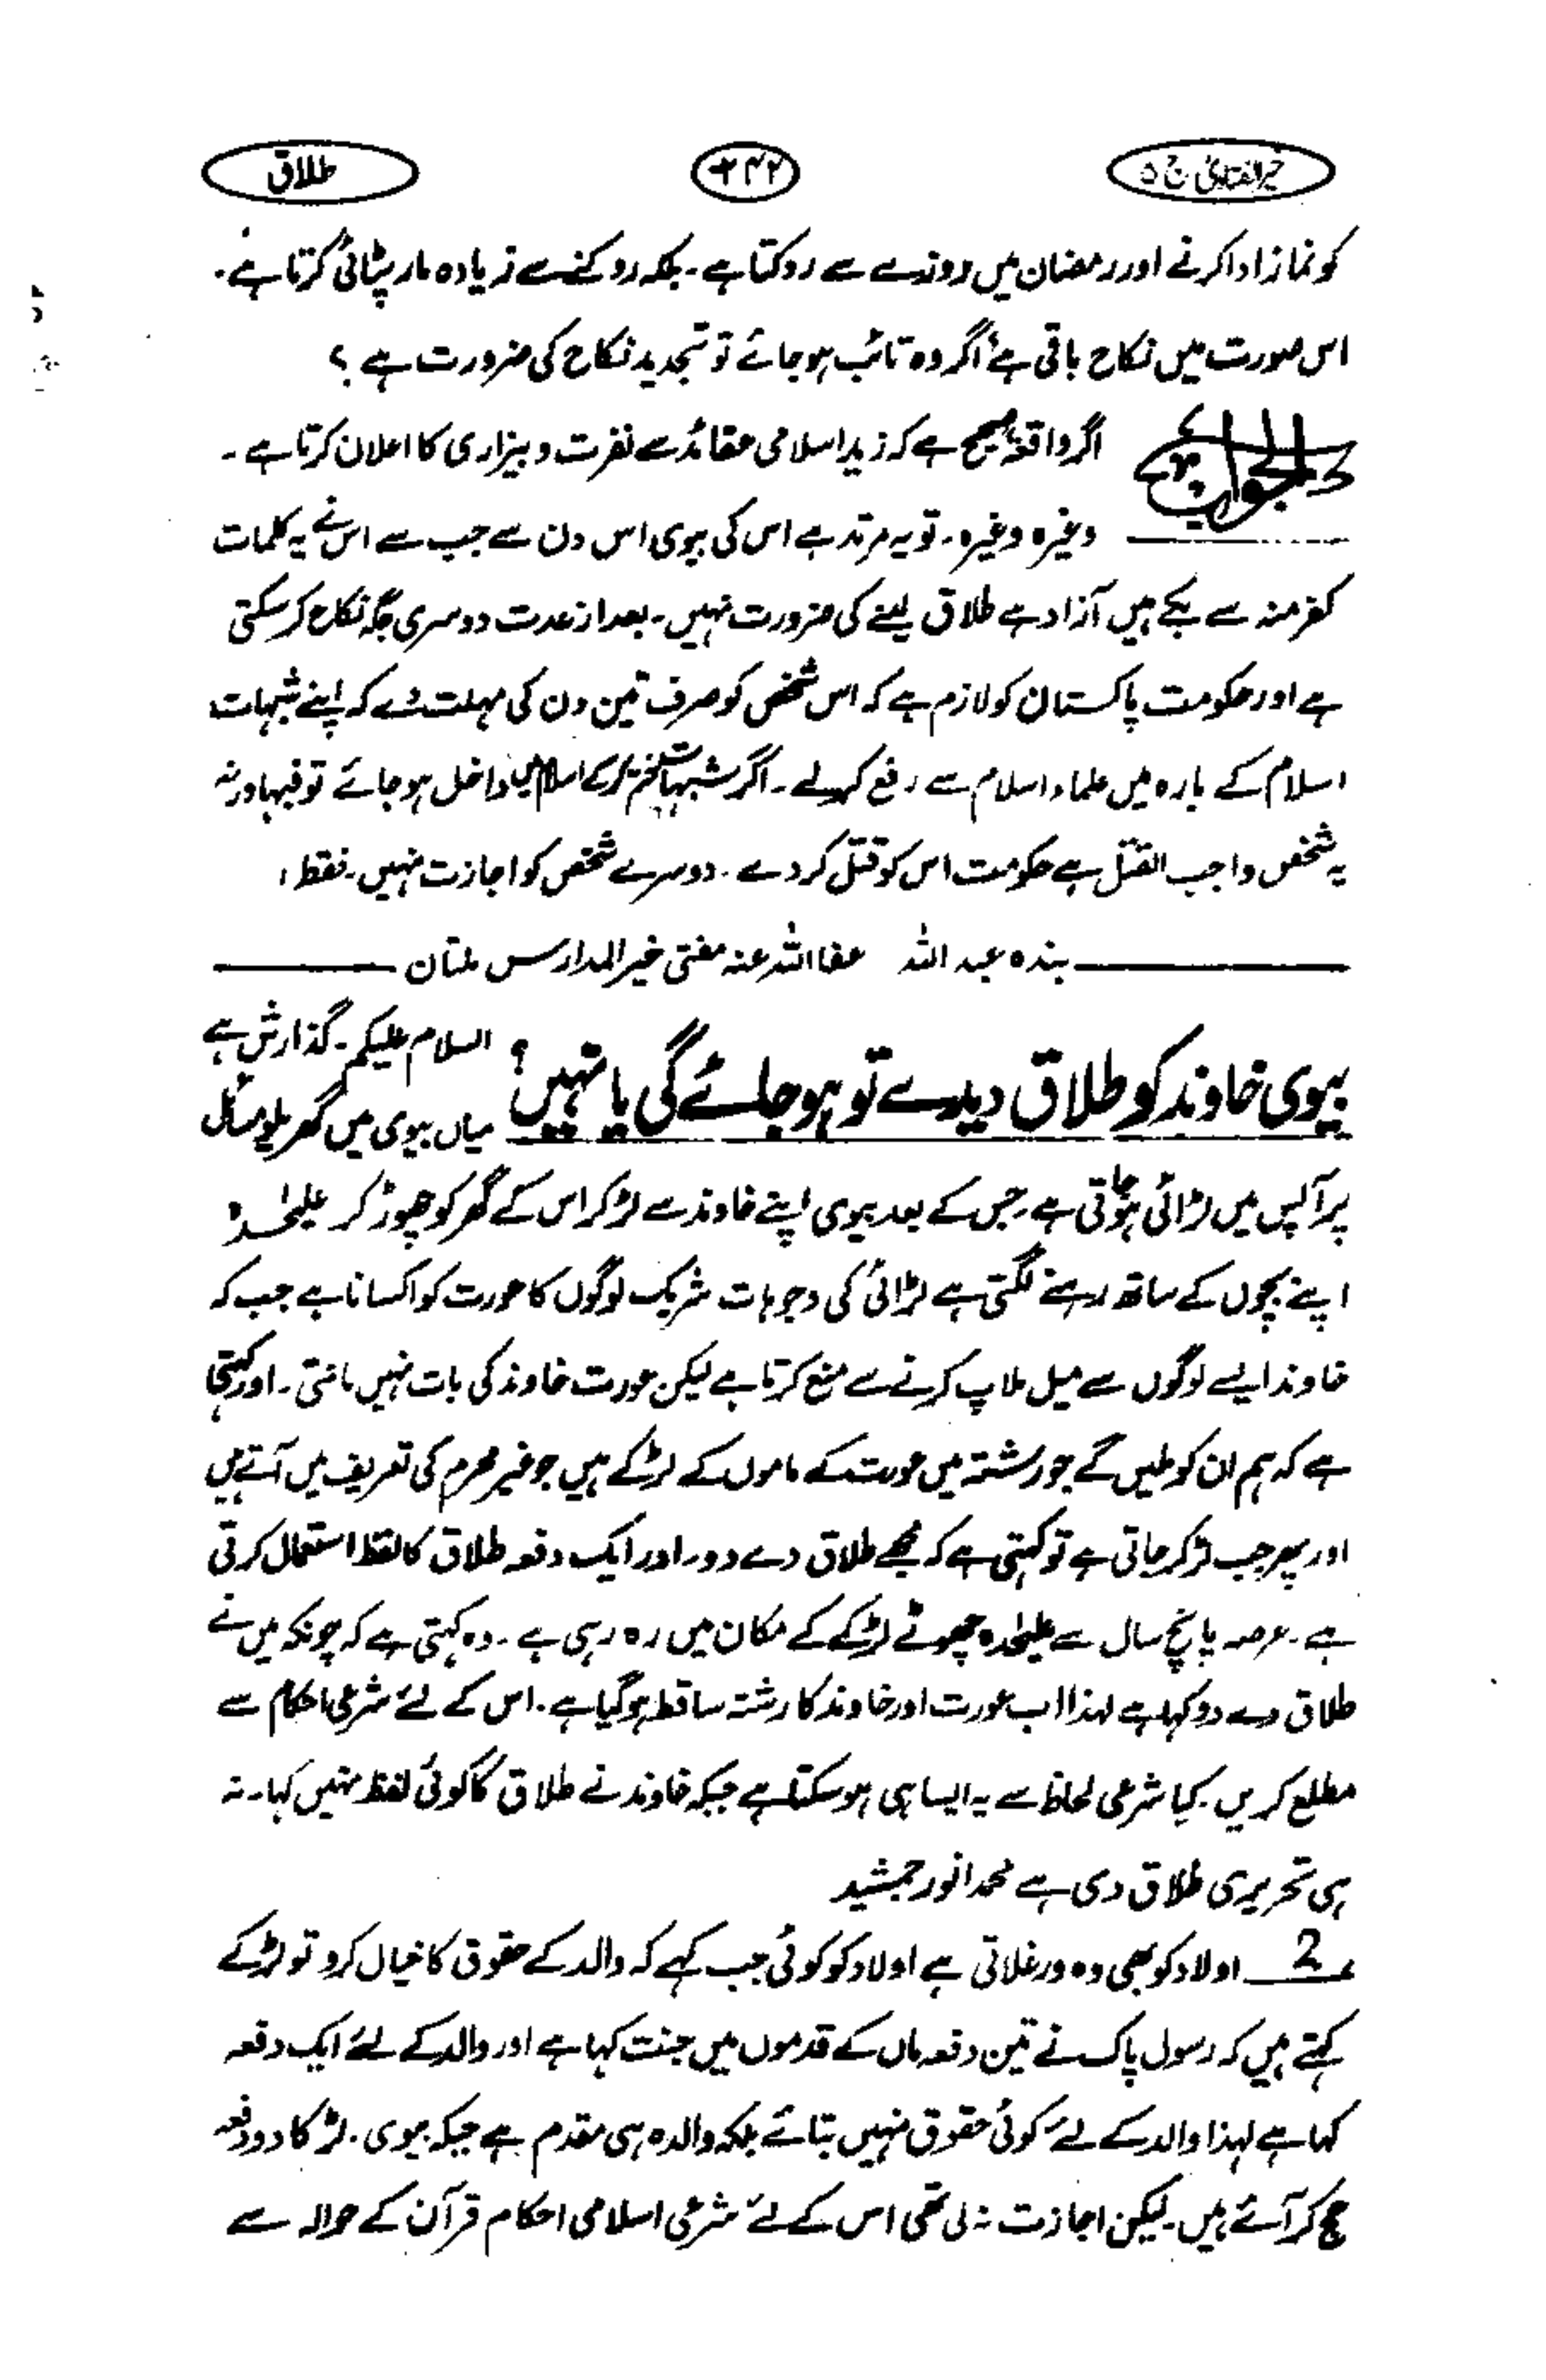 خیر الفتاویٰ ج ۵
۲۴۲
طلاق
کو نماز ادا کرنے اور رمضان میں روزے سے روکتا ہے۔ بلکہ روکنے سے زیادہ مار پٹائی کرتا ہے۔
اس صورت میں نکاح باقی ہے اگر وہ تائب ہو جائے تو تجدید نکاح کی ضرورت ہے ؟
الجواب
اگر واقعۃً صحیح ہے کہ زید اسلامی عقائد سے نفرت و بیزاری کا اعلان کرتا ہے۔
وغیرہ وغیرہ۔ تو یہ مرتد ہے اس کی بیوی اس دن سے جب سے اس نے یہ کلمات
کفر منہ سے بکے ہیں آزاد ہے طلاق لینے کی ضرورت نہیں۔ بعد از عدت دوسری جگہ نکاح کر سکتی
ہے اور حکومت پاکستان کو لازم ہے کہ اس شخص کو صرف تین دن کی مہلت دے کہ اپنے شبہات
اسلام کے بارہ میں علماء اسلام سے رفع کرلے۔ اگر شبہات ختم کرکے اسلام میں داخل ہو جائے تو فبہا ورنہ
یہ شخص واجب القتل ہے حکومت اس کو قتل کردے۔ دوسرے شخص کو اجازت نہیں۔ فقط،
بندہ عبد اللہ عفا اللہ عنہ مفتی خیر المدارس ملتان
بیوی خاوند کو طلاق دیدے تو ہو جائے گی یا نہیں؟
السلام علیکم۔ گذارش ہے
میاں بیوی میں گھریلو مسائل
پر آپس میں لڑائی ہو جاتی ہے جس کے بعد بیوی اپنے خاوند سے لڑ کر اس کے گھر کو چھوڑ کر علیٰحدہ
اپنے بچوں کے ساتھ رہنے لگتی ہے لڑائی کی وجوہات شریک لوگوں کا عورت کو اکسانا ہے جب کہ
خاوند ایسے لوگوں سے میل ملاپ کرنے سے منع کرتا ہے لیکن عورت خاوند کی بات نہیں مانتی۔ اور کہتی
ہے کہ ہم ان کو ملیں گے جو رشتہ میں عورت کے ماموں کے لڑکے ہیں جو غیر محرم کی تعریف میں آتے ہیں
اور پھر جب لڑ کر جاتی ہے تو کہتی ہے کہ مجھے طلاق دے دو۔ اور ایک دفعہ طلاق کا لفظ استعمال کرتی
ہے۔ عرصہ پانچ سال سے علیٰحدہ چھوٹے لڑکے کے مکان میں رہ رہی ہے۔ وہ کہتی ہے کہ چونکہ میں نے
طلاق دے دو کہا ہے لہذا اب عورت اور خاوند کا رشتہ ساقط ہو گیا ہے۔ اس کے لئے شرعی احکام سے
مطلع کریں۔ کیا شرعی لحاظ سے یہ ایسا ہی ہو سکتا ہے جبکہ خاوند نے طلاق کا کوئی لفظ نہیں کہا۔ نہ
ہی تحریری طلاق دی ہے محمد انور جمشید
2 اولاد کو بھی وہ ورغلاتی ہے اولاد کو کوئی جب کہے کہ والد کے حقوق کا خیال کرو تو لڑکے
کہتے ہیں کہ رسول پاک نے تین دفعہ ماں کے قدموں میں جنت کہا ہے اور والد کے لئے ایک دفعہ
کہا ہے لہذا والد کے لئے کوئی حقوق نہیں بتائے بلکہ والدہ ہی مقدم ہے جبکہ بیوی۔ لڑکا دو دفعہ
حج کر آئے ہیں۔ لیکن اجازت نہ لی تھی اس کے لئے شرعی اسلامی احکام قرآن کے حوالہ سے